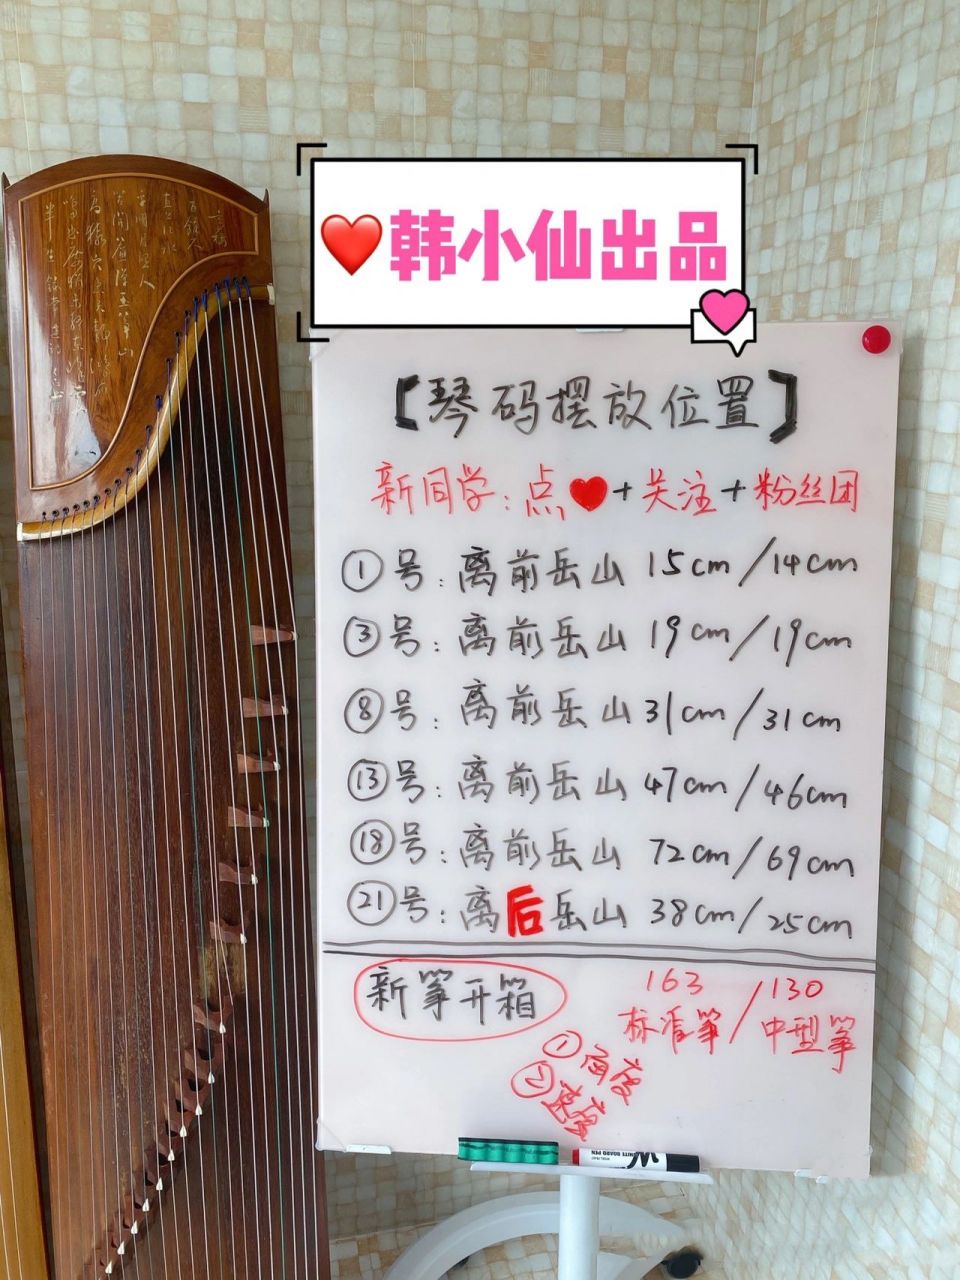 ❤韩小仙出品
【琴码摆放位置】
新同学：点❤+关注+粉丝团
①号：离前岳山 15cm/14cm
③号：离前岳山 19cm/19cm
⑧号：离前岳山 31cm/31cm
⑬号：离前岳山 47cm/46cm
⑱号：离前岳山 72cm/69cm
㉑号：离后岳山 38cm/25cm
新筝开箱
163/130
标准筝/中型筝
①角度
②速度
WHITE BOARD PEN